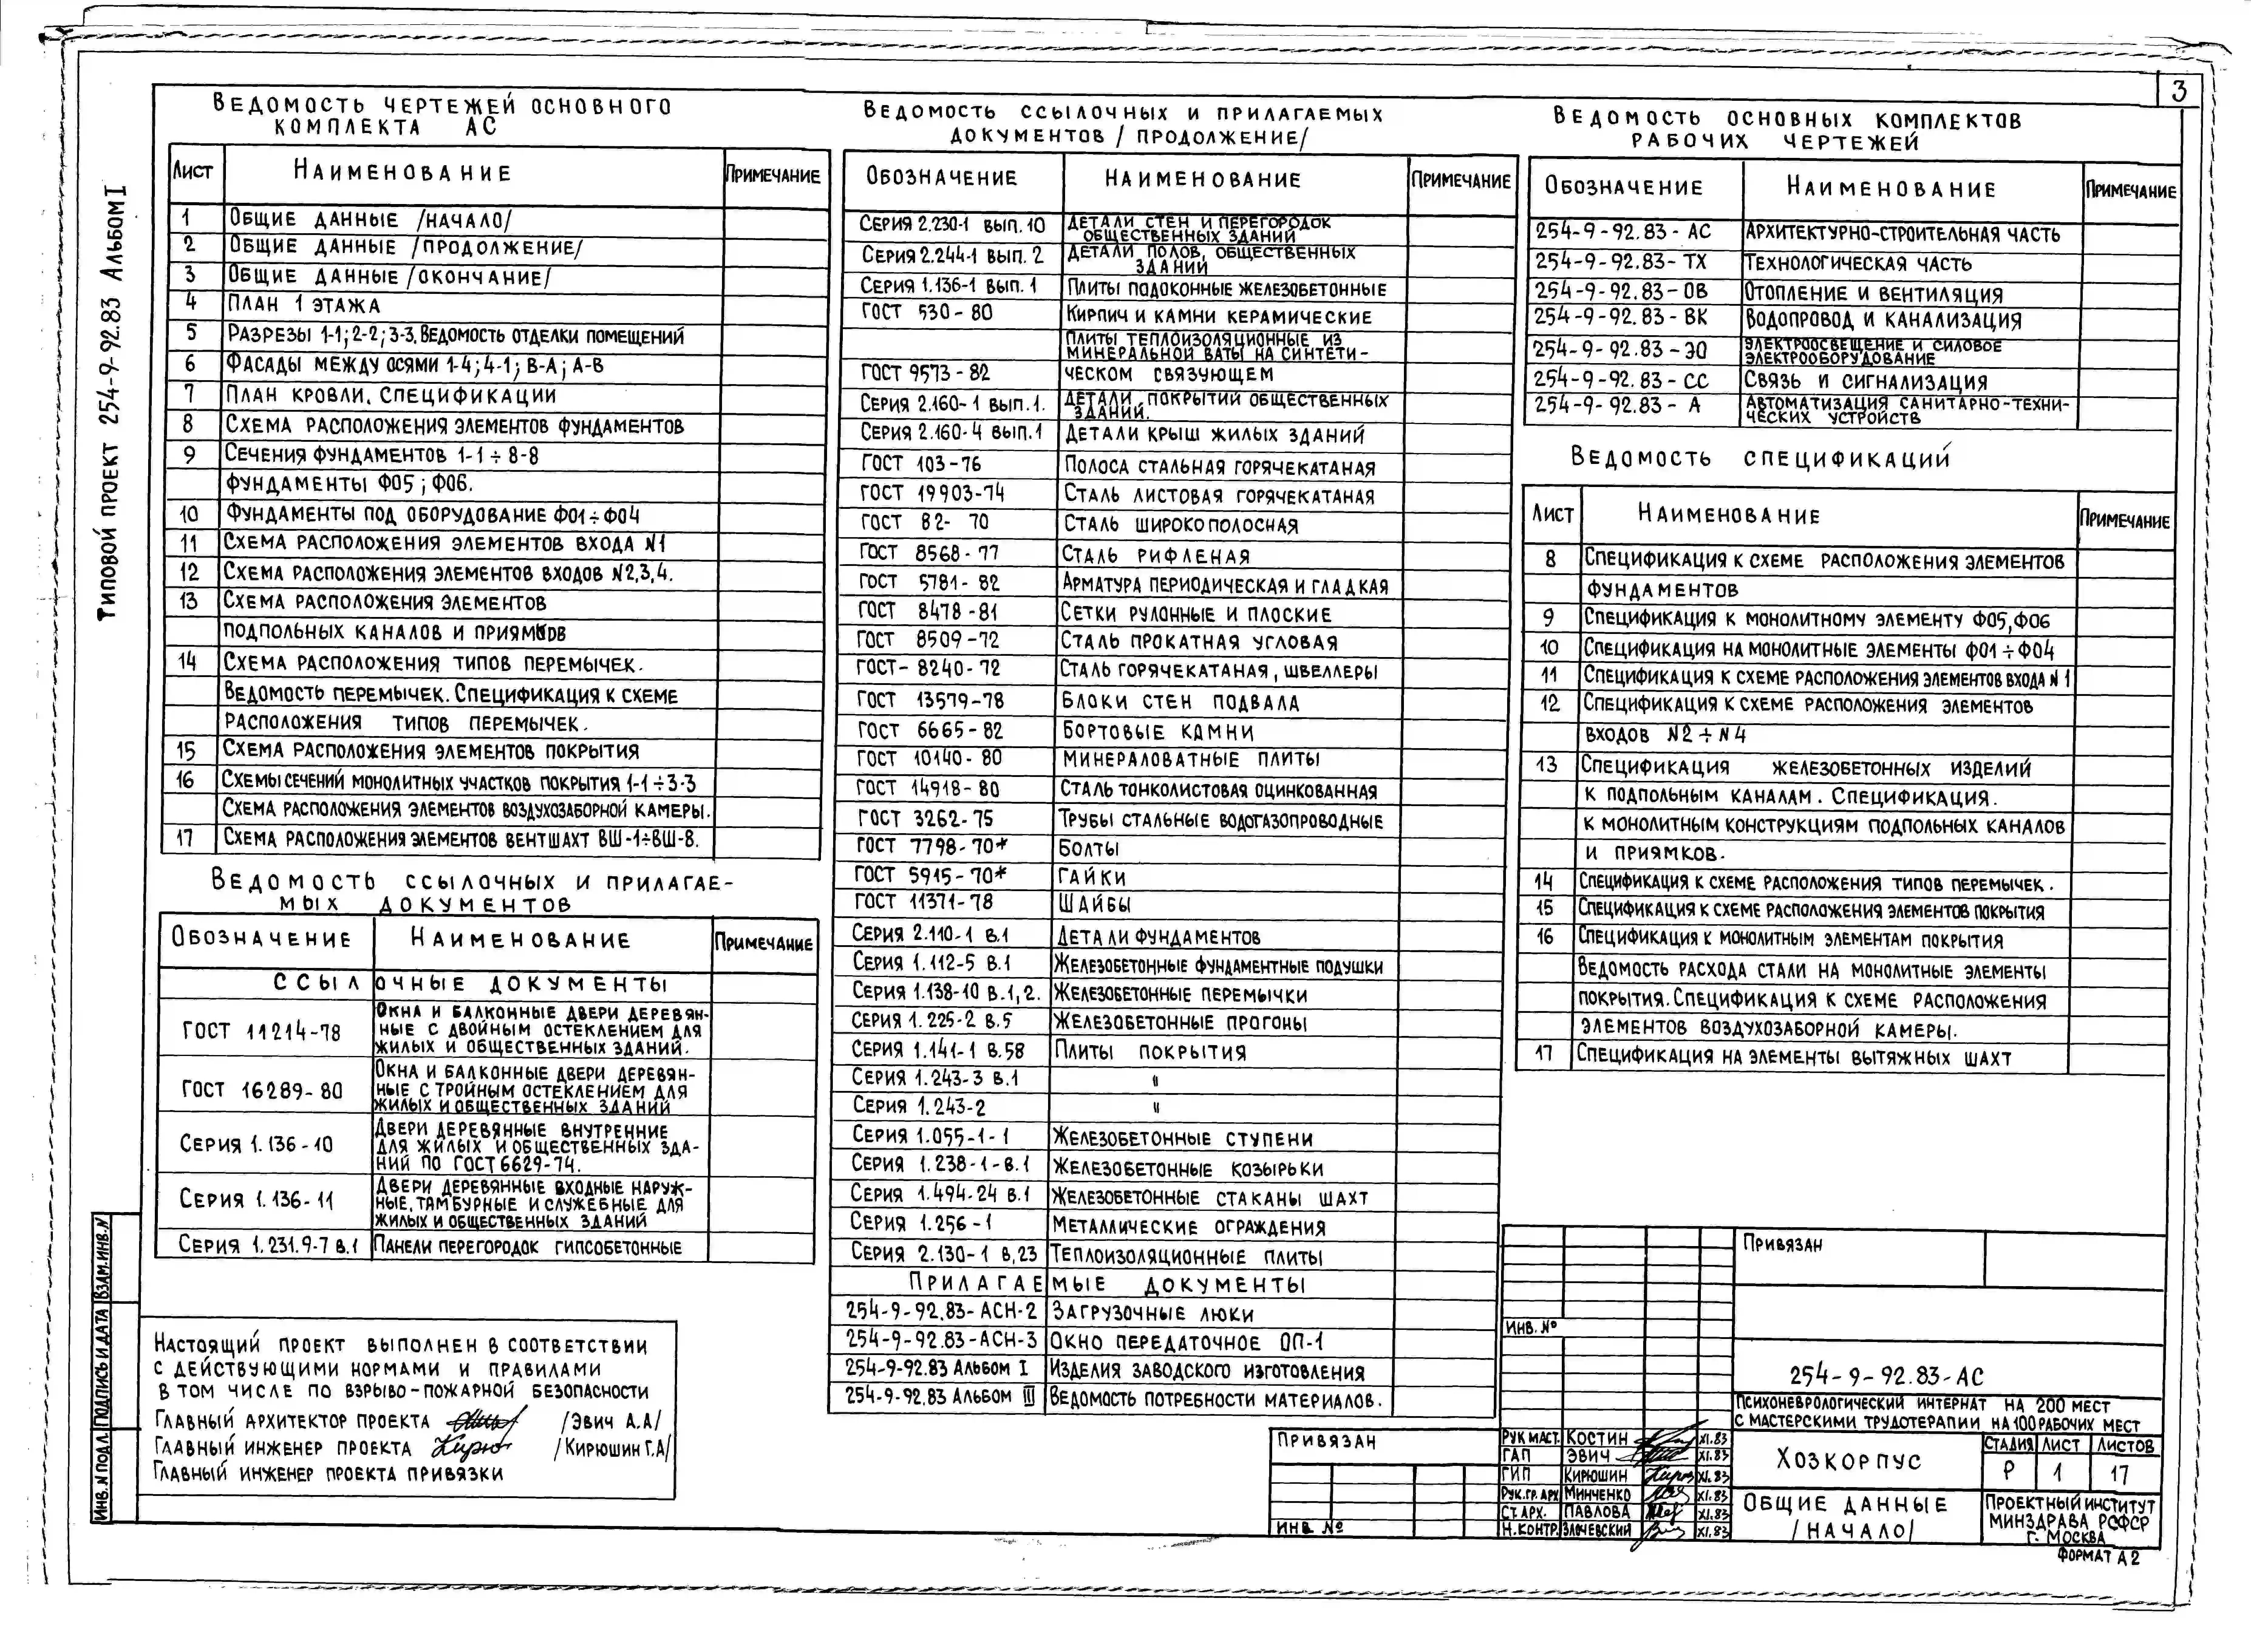 3
Типовой проект 254-9-92.83 Альбом I
Ведомость чертежей основного
комплекта АС
Лист Наименование Примечание
1 Общие данные /начало/
2 Общие данные /продолжение/
3 Общие данные /окончание/
4 План 1 этажа
5 Разрезы 1-1; 2-2; 3-3. Ведомость отделки помещений
6 Фасады между осями 1-4; 4-1; В-А; А-В
7 План кровли. Спецификации
8 Схема расположения элементов фундаментов
9 Сечения фундаментов 1-1 ÷ 8-8
фундаменты Ф05; Ф06.
10 Фундаменты под оборудование Ф01÷Ф04
11 Схема расположения элементов входа №1
12 Схема расположения элементов входов №2,3,4.
13 Схема расположения элементов
подпольных каналов и приямков
14 Схема расположения типов перемычек.
Ведомость перемычек. Спецификация к схеме
расположения типов перемычек.
15 Схема расположения элементов покрытия
16 Схемы сечений монолитных участков покрытия 1-1÷3-3
Схема расположения элементов воздухозаборной камеры.
17 Схема расположения элементов вентшахт ВШ-1÷ВШ-8.
Ведомость ссылочных и прилагае-
мых документов
Обозначение Наименование Примечание
Ссылочные документы
ГОСТ 11214-78 Окна и балконные двери деревян-
ные с двойным остеклением для
жилых и общественных зданий.
ГОСТ 16289-80 Окна и балконные двери деревян-
ные с тройным остеклением для
жилых и общественных зданий
Серия 1.136-10 Двери деревянные внутренние
для жилых и общественных зда-
ний по ГОСТ 6629-74.
Серия 1.136-11 Двери деревянные входные наруж-
ные, тамбурные и служебные для
жилых и общественных зданий
Серия 1.231.9-7 в.1 Панели перегородок гипсобетонные
Настоящий проект выполнен в соответствии
с действующими нормами и правилами
в том числе по взрыво-пожарной безопасности
Главный архитектор проекта /Эвич А.А/
Главный инженер проекта /Кирюшин Г.А/
Главный инженер проекта привязки
Инв.№ подл. Подпись и дата Взам.инв.№
Ведомость ссылочных и прилагаемых
документов /продолжение/
Обозначение Наименование Примечание
Серия 2.230-1 вып.10 Детали стен и перегородок
общественных зданий
Серия 2.244-1 вып.2 Детали полов, общественных
зданий
Серия 1.136-1 вып.1 Плиты подоконные железобетонные
ГОСТ 530-80 Кирпич и камни керамические
Плиты теплоизоляционные из
минеральной ваты на синтети-
ГОСТ 9573-82 ческом связующем
Серия 2.160-1 вып.1. Детали покрытий общественных
зданий.
Серия 2.160-4 вып.1 Детали крыш жилых зданий
ГОСТ 103-76 Полоса стальная горячекатаная
ГОСТ 19903-74 Сталь листовая горячекатаная
ГОСТ 82-70 Сталь широкополосная
ГОСТ 8568-77 Сталь рифленая
ГОСТ 5781-82 Арматура периодическая и гладкая
ГОСТ 8478-81 Сетки рулонные и плоские
ГОСТ 8509-72 Сталь прокатная угловая
ГОСТ-8240-72 Сталь горячекатаная, швеллеры
ГОСТ 13579-78 Блоки стен подвала
ГОСТ 6665-82 Бортовые камни
ГОСТ 10140-80 Минераловатные плиты
ГОСТ 14918-80 Сталь тонколистовая оцинкованная
ГОСТ 3262-75 Трубы стальные водогазопроводные
ГОСТ 7798-70* Болты
ГОСТ 5915-70* Гайки
ГОСТ 11371-78 Шайбы
Серия 2.110-1 в.1 Детали фундаментов
Серия 1.112-5 в.1 Железобетонные фундаментные подушки
Серия 1.138-10 в.1,2. Железобетонные перемычки
Серия 1.225-2 в.5 Железобетонные прогоны
Серия 1.141-1 в.58 Плиты покрытия
Серия 1.243-3 в.1 "
Серия 1.243-2 "
Серия 1.055-1-1 Железобетонные ступени
Серия 1.238-1-в.1 Железобетонные козырьки
Серия 1.494-24 в.1 Железобетонные стаканы шахт
Серия 1.256-1 Металлические ограждения
Серия 2.130-1 в,23 Теплоизоляционные плиты
Прилагаемые документы
254-9-92.83-АСН-2 Загрузочные люки
254-9-92.83-АСН-3 Окно передаточное ОП-1
254-9-92.83 Альбом I Изделия заводского изготовления
254-9-92.83 Альбом III Ведомость потребности материалов.
Ведомость основных комплектов
рабочих чертежей
Обозначение Наименование Примечание
254-9-92.83-АС Архитектурно-строительная часть
254-9-92.83-ТХ Технологическая часть
254-9-92.83-ОВ Отопление и вентиляция
254-9-92.83-ВК Водопровод и канализация
254-9-92.83-ЭО Электроосвещение и силовое
электрооборудование
254-9-92.83-СС Связь и сигнализация
254-9-92.83-А Автоматизация санитарно-техни-
ческих устройств
Ведомость спецификаций
Лист Наименование Примечание
8 Спецификация к схеме расположения элементов
фундаментов
9 Спецификация к монолитному элементу Ф05,Ф06
10 Спецификация на монолитные элементы Ф01÷Ф04
11 Спецификация к схеме расположения элементов входа №1
12 Спецификация к схеме расположения элементов
входов №2÷№4
13 Спецификация железобетонных изделий
к подпольным каналам. Спецификация.
к монолитным конструкциям подпольных каналов
и приямков.
14 Спецификация к схеме расположения типов перемычек.
15 Спецификация к схеме расположения элементов покрытия
16 Спецификация к монолитным элементам покрытия
Ведомость расхода стали на монолитные элементы
покрытия. Спецификация к схеме расположения
элементов воздухозаборной камеры.
17 Спецификация на элементы вытяжных шахт
Привязан
Инв.№
Привязан
Инв.№
254-9-92.83-АС
Психоневрологический интернат на 200 мест
с мастерскими трудотерапии на 100 рабочих мест
Рук.маст. Костин XI.83
ГАП Эвич XI.83
ГИП Кирюшин XI.83
Рук.гр.арх Минченко XI.83
Ст.арх. Павлова XI.83
Н.контр. Злочевский XI.83
Хозкорпус
Стадия Лист Листов
Р 1 17
Общие данные
/начало/
Проектный институт
Минздрава РСФСР
г. Москва
Формат А2